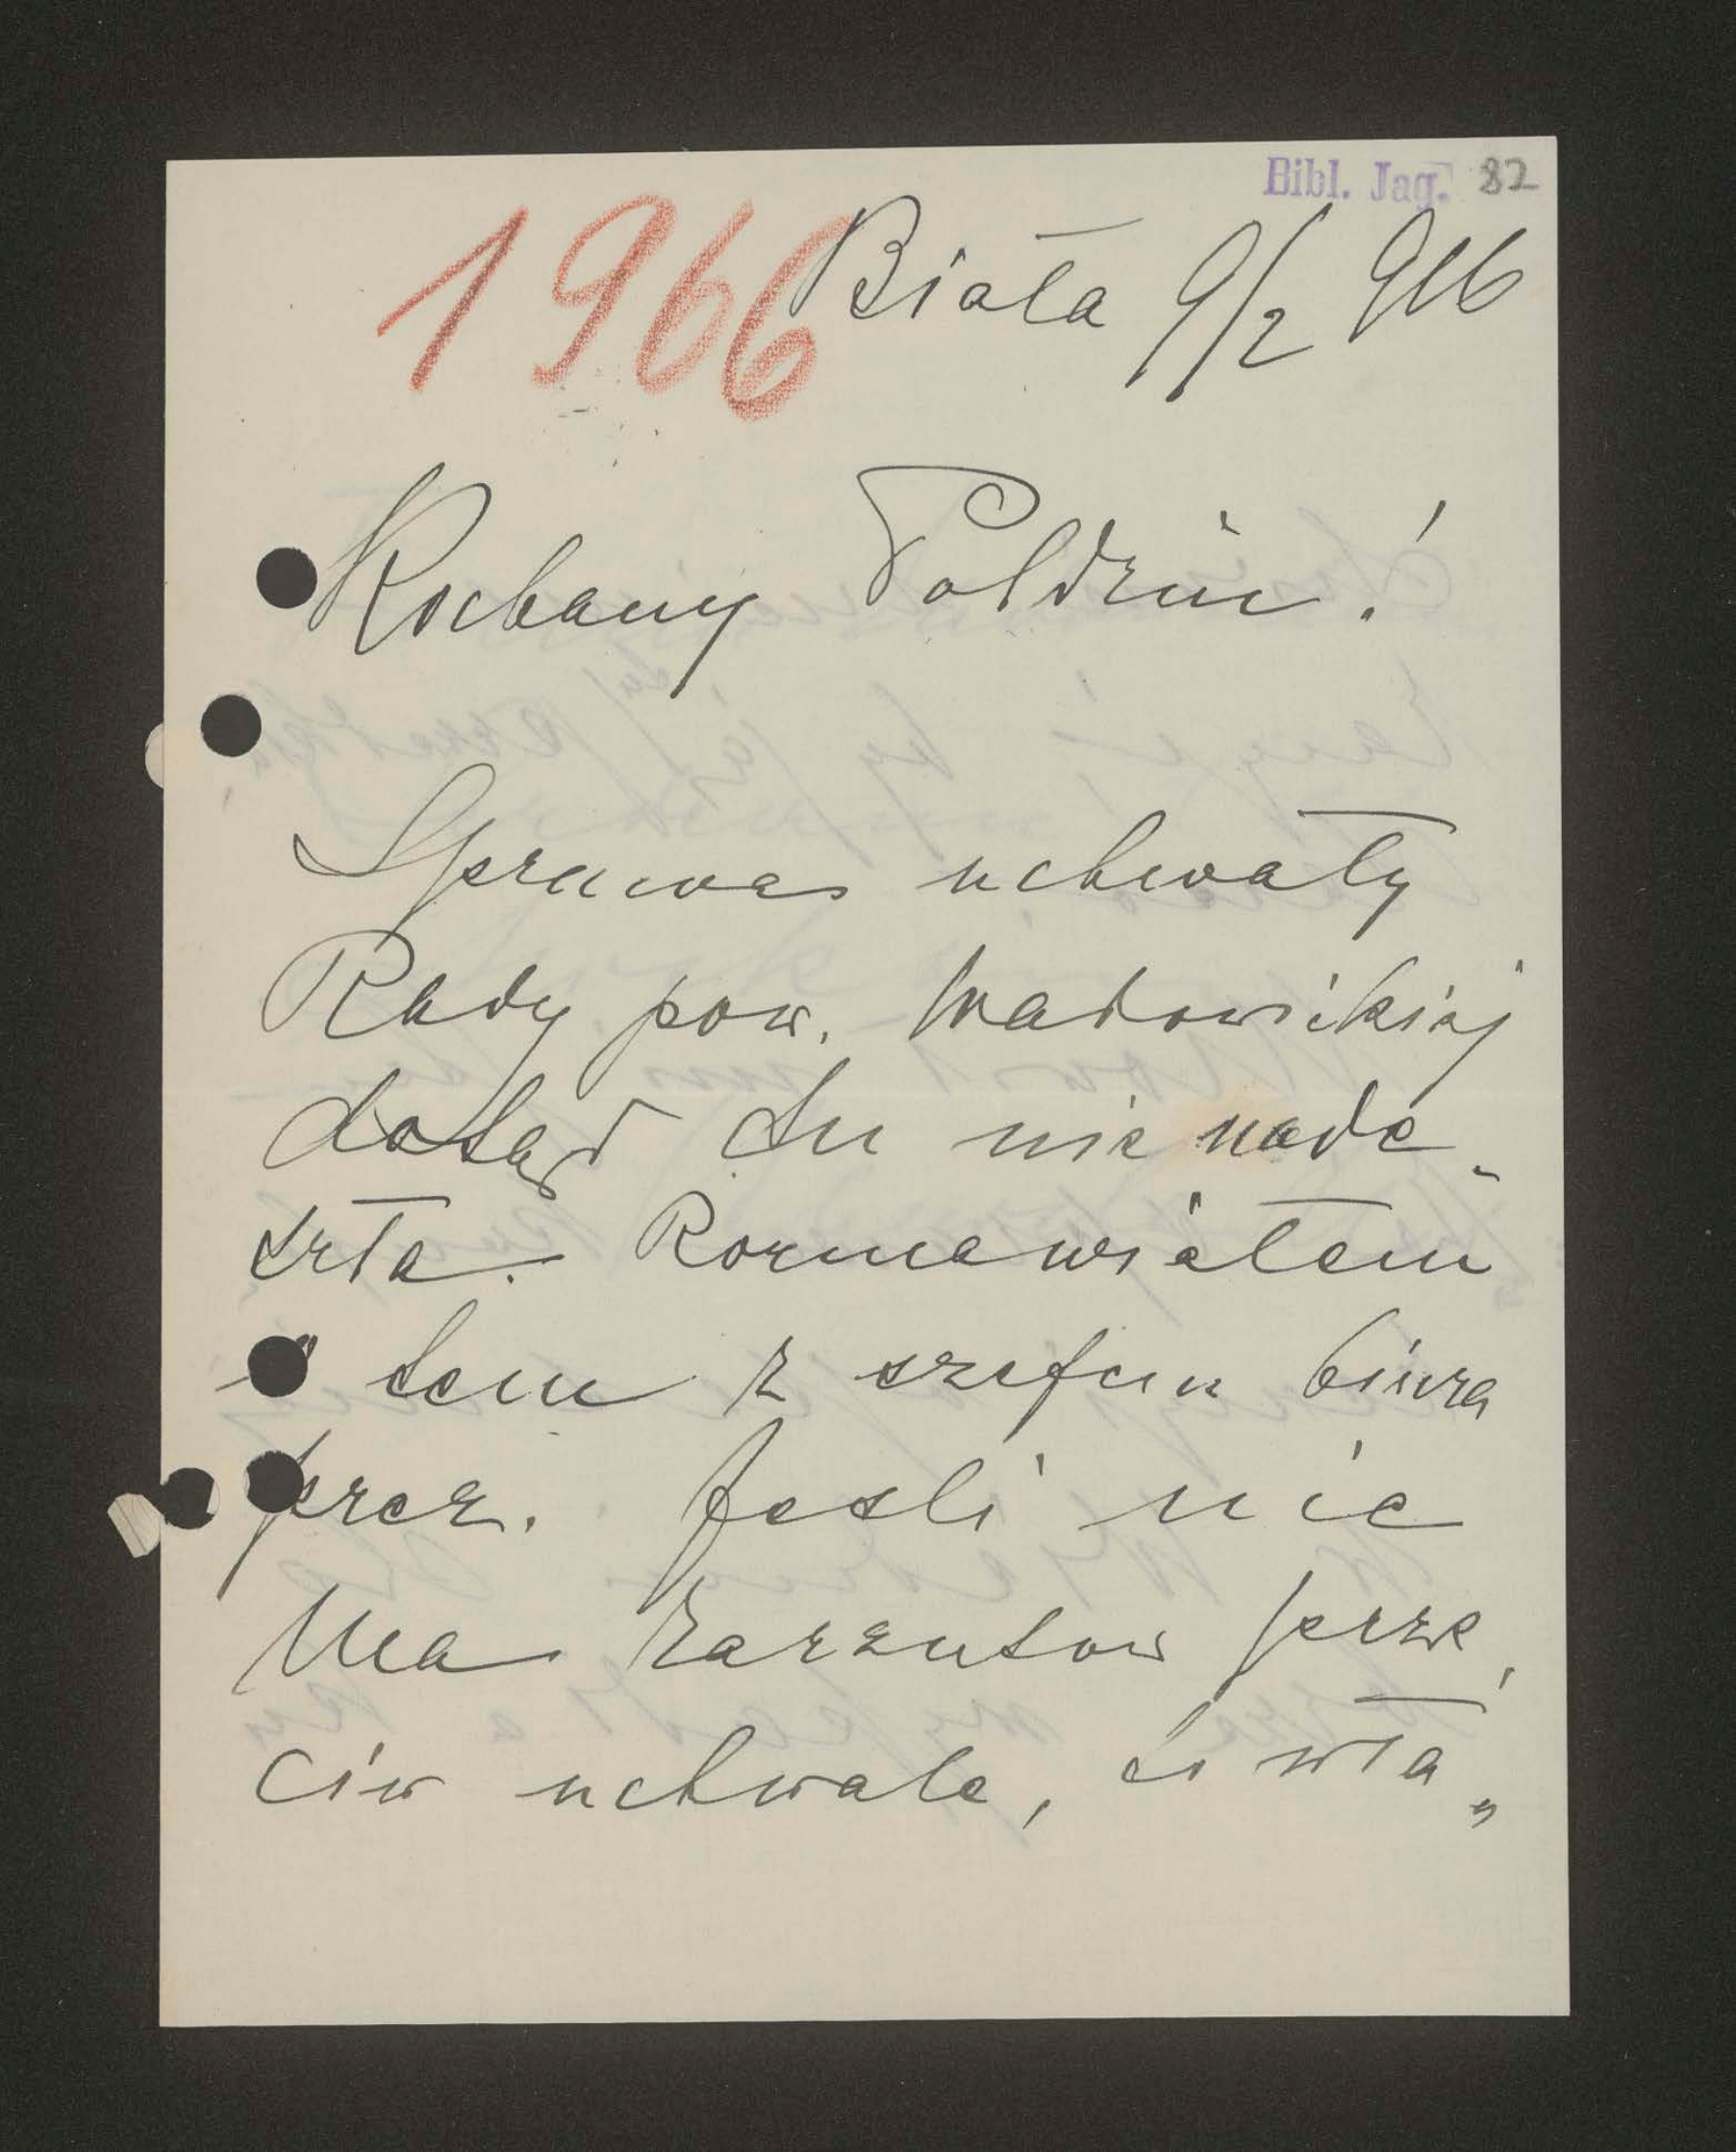 Bibl. Jag. 82
1966 Biała 9/2 916
Kochany Poldziu!
Sprawa uchwały
Rady pow. Wadowickiej
dotąd tu nie nade-
szła. Rozmawiałem
o tem z szefem biura
prez. Jeśli nie
ma zarzutów prze-
ciw uchwale, to wła„